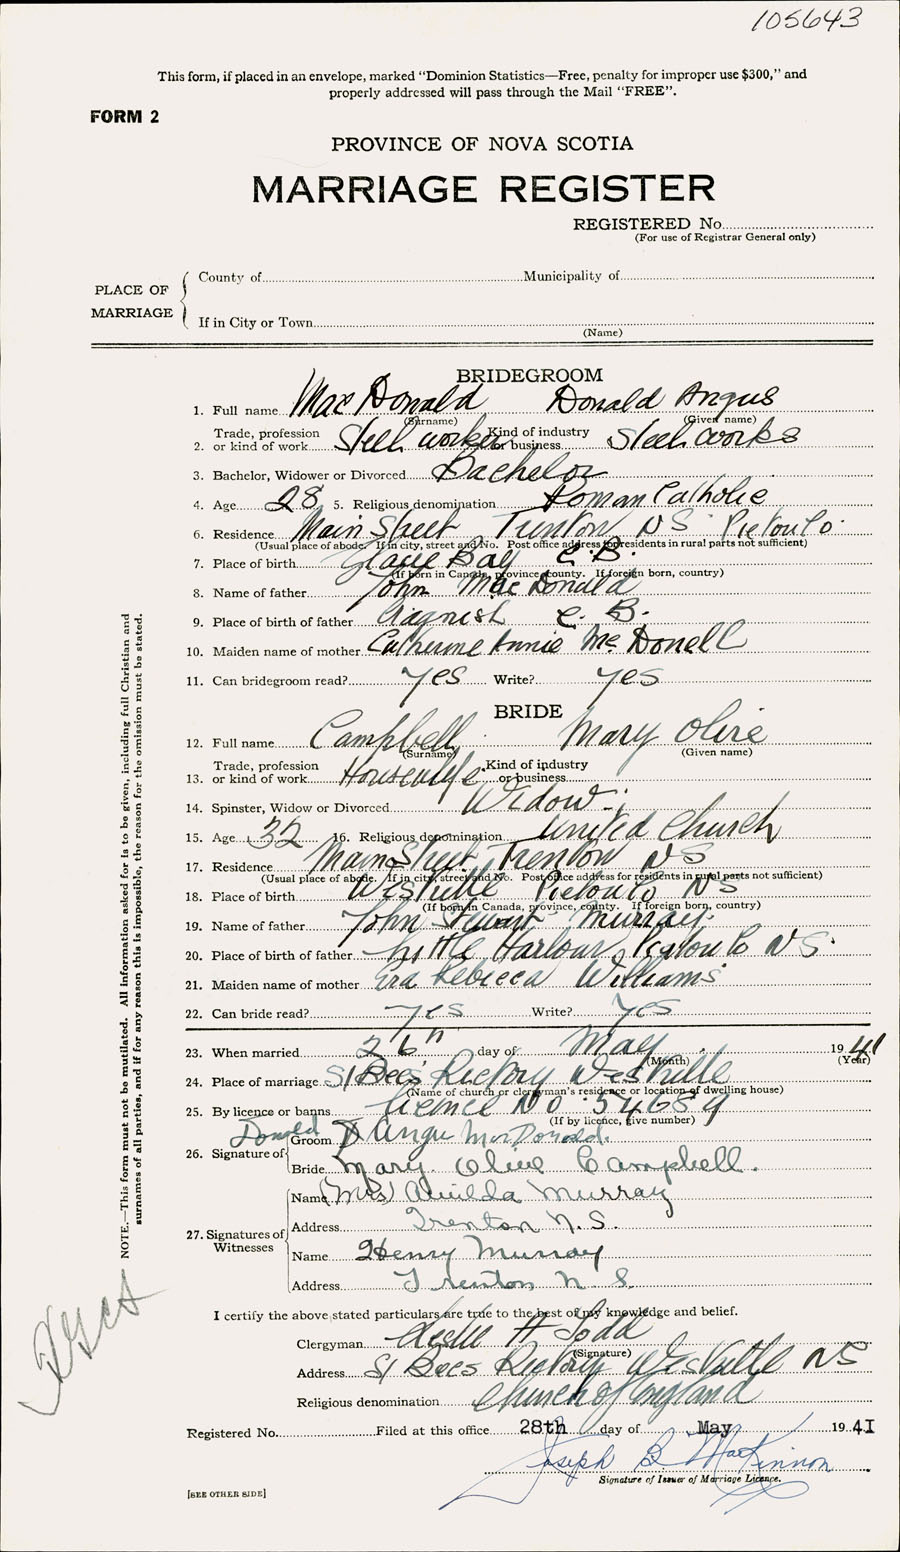 105643
This form, if placed in an envelope, marked “Dominion Statistics—Free, penalty for improper use $300,” and
properly addressed will pass through the Mail “FREE”.
FORM 2
PROVINCE OF NOVA SCOTIA
MARRIAGE REGISTER
REGISTERED No.
(For use of Registrar General only)
PLACE OF MARRIAGE
County of Municipality of
If in City or Town
(Name)
BRIDEGROOM
1. Full name MacDonald Donald Angus
(Surname) (Given name)
2. Trade, profession or kind of work Steel worker Kind of industry or business Steel works
3. Bachelor, Widower or Divorced Bachelor
4. Age 28 5. Religious denomination Roman Catholic
6. Residence Main Street Trenton NS Pictou Co.
(Usual place of abode. If in city, street and No. Post office address for residents in rural parts not sufficient)
7. Place of birth Glace Bay C.B.
(If born in Canada, province, county. If foreign born, country)
8. Name of father John MacDonald
9. Place of birth of father C.B.
10. Maiden name of mother Catherine Annie McDonell
11. Can bridegroom read? yes Write? yes
BRIDE
12. Full name Campbell Mary Olive
(Surname) (Given name)
13. Trade, profession or kind of work Housewife Kind of industry or business
14. Spinster, Widow or Divorced Widow
15. Age 32 16. Religious denomination United Church
17. Residence Main Street Trenton NS
(Usual place of abode. If in city, street and No. Post office address for residents in rural parts not sufficient)
18. Place of birth Westville Pictou Co NS
(If born in Canada, province, county. If foreign born, country)
19. Name of father John Stewart Murray
20. Place of birth of father Little Harbour Pictou Co NS.
21. Maiden name of mother Rebecca Williams
22. Can bride read? yes Write? yes
23. When married 26th day of May 1941
(Month) (Year)
24. Place of marriage St Bees Rectory Westville
(Name of church or clergyman's residence or location of dwelling house)
25. By licence or banns licence No 54689
(If by licence, give number)
26. Signature of
Groom Donald Angus MacDonald.
Bride Mary Olive Campbell.
27. Signatures of Witnesses
Name (Mrs) Murray
Address Trenton N.S.
Name Henry Murray
Address Trenton N.S.
I certify the above stated particulars are true to the best of my knowledge and belief.
Clergyman H Todd
(Signature)
Address St Bees Rectory Westville NS
Religious denomination Church of England
Registered No. Filed at this office 28th day of May 1941
Joseph B MacKinnon
Signature of Issuer of Marriage Licence.
[SEE OTHER SIDE]
NOTE.—This form must not be mutilated. All information asked for is to be given, including full Christian and
surnames of all parties, and if for any reason this is impossible, the reason for the omission must be stated.